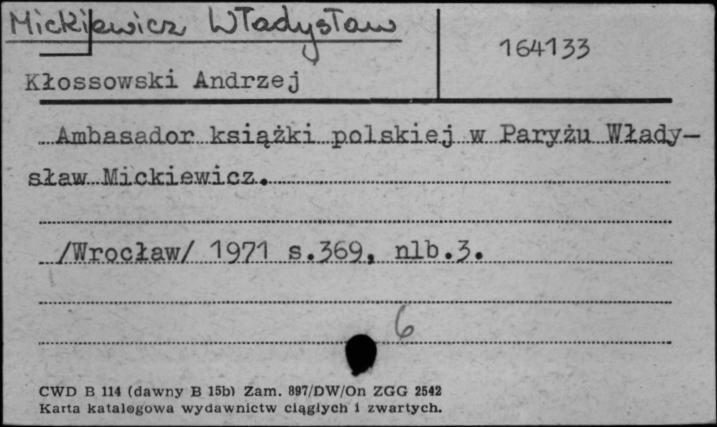 Mickiewicz Władysław
164133
Kłossowski Andrzej
Ambasador książki polskiej w Paryżu Włady—
sław Mickiewicz.
/Wrocław/ 1971 s.369, nlb.3.
6
CWD B 114 (dawny B 15b) Zam. 897/DW/On ZGG 2542
Karta katalogowa wydawnictw ciągłych i zwartych.